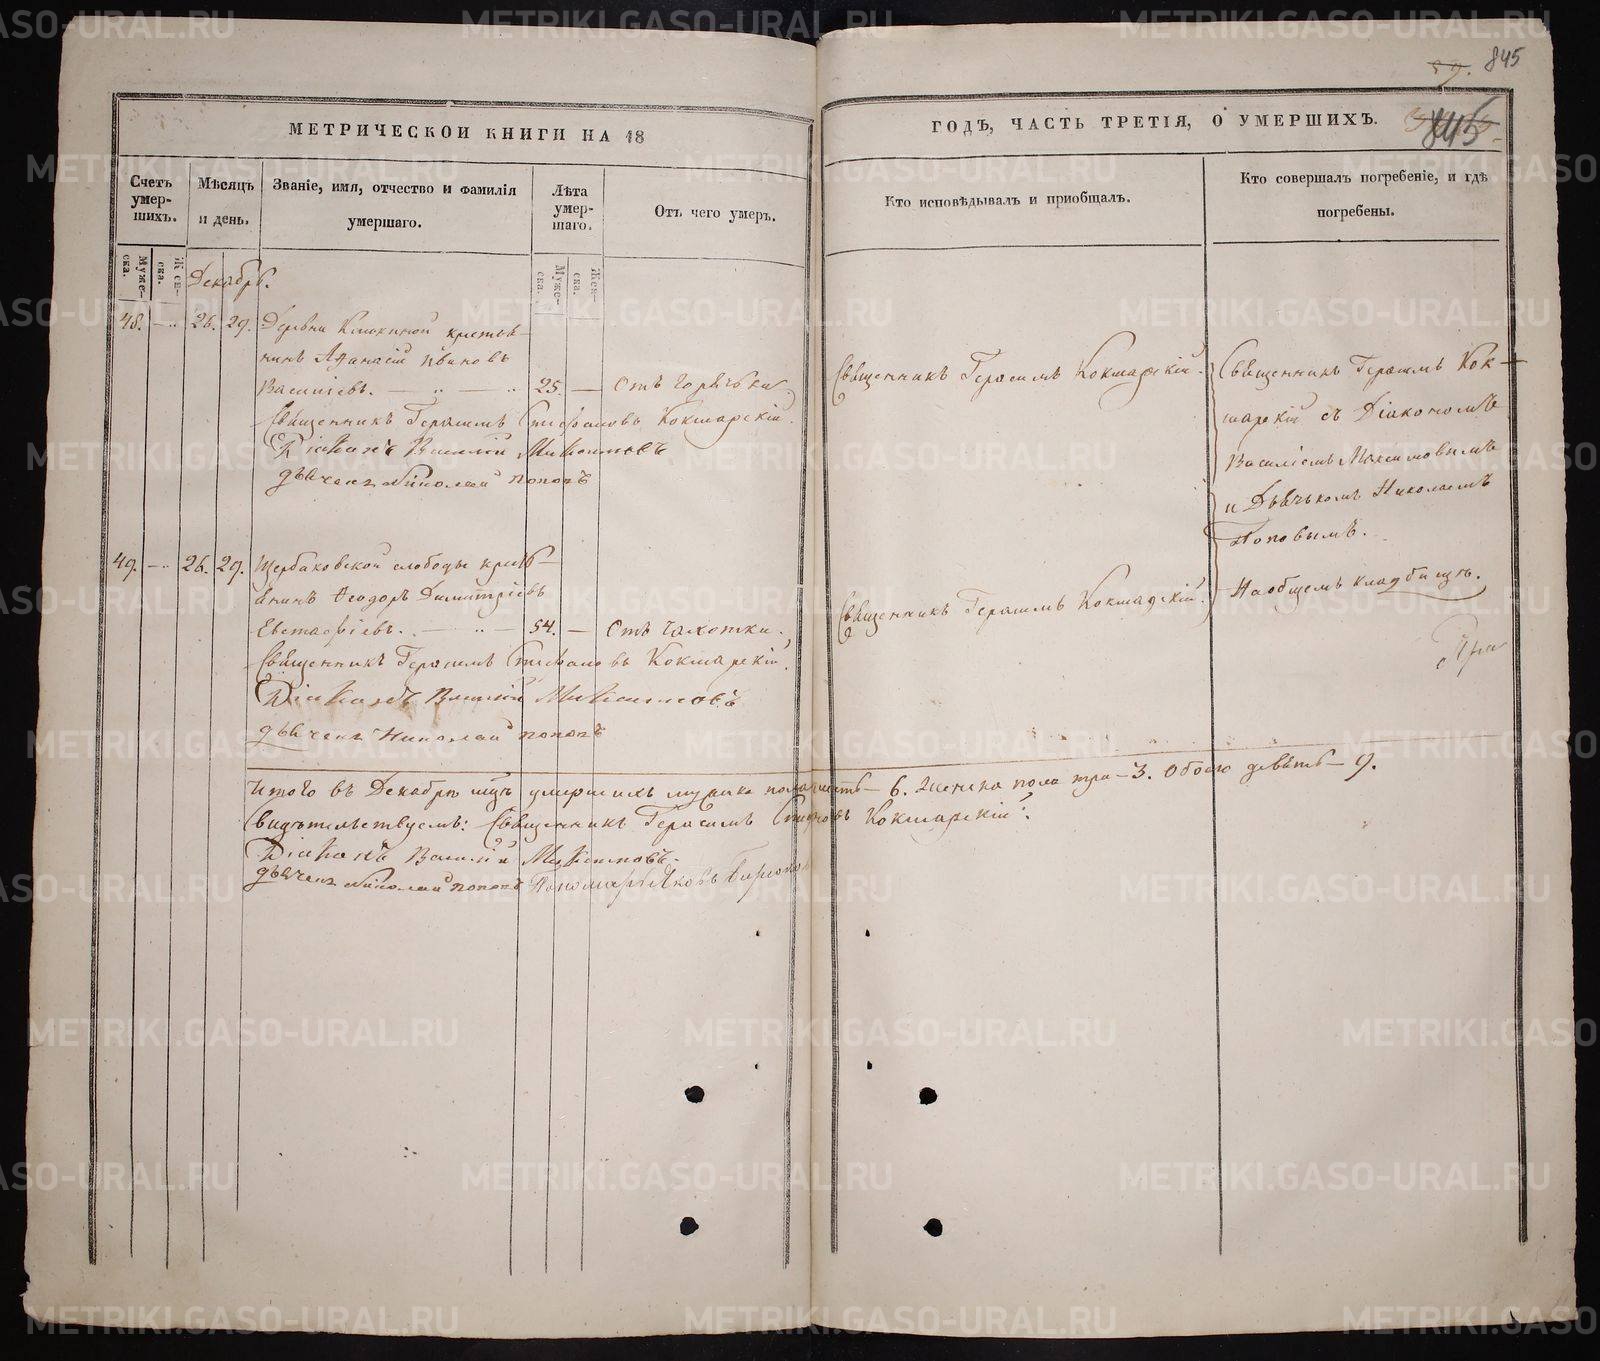 845
МЕТРИЧЕСКОЙ КНИГИ НА 18
ГОДЪ, ЧАСТЬ ТРЕТІЯ, О УМЕРШИХЪ.
845
Счетъ умер-шихъ.
Муже-ска.
Жен-ска.
Мѣсяцъ и день.
Званіе, имя, отчество и фамилія умершаго.
Лѣта умер-шаго.
Муже-ска.
Жен-ска.
Отъ чего умеръ.
Кто исповѣдывалъ и пріобщалъ.
Кто совершалъ погребеніе, и гдѣ погребены.
Декабрь.
48. 26. 29. Деревни крестья-
нинъ Афанасій Ивановъ
Василіевъ. 25. Отъ горячки
Священникъ Герасимъ Стефановъ Кокшарскій.
Діаконъ Василій Максимовъ
дьячекъ Николай Поповъ
Священникъ Герасимъ Кокшарскій.
Священникъ Герасимъ Кок-
шарскій съ Діакономъ
Василіемъ Максимовымъ
и Дьячькомъ Николаемъ
Поповымъ.
49. 26. 29. Щербаковской слободы крестья-
нинъ Ѳеодоръ Димитріевъ
Евстафіевъ. 54. Отъ чахотки.
Священникъ Герасимъ Стефановъ Кокшарскій.
Діаконъ Василій Максимовъ
дьячекъ Николай Поповъ
Священникъ Герасимъ Кокшарскій.
На общемъ кладбищѣ.
Итого въ Декабрѣ мцѣ умершихъ мужска пола шесть - 6. Женска пола три - 3. Обоего девять - 9.
Свидѣтельствуемъ: Священникъ Герасимъ Стефановъ Кокшарскій.
Діаконъ Василій Максимовъ.
дьячекъ Николай Поповъ Пономарь Яковъ
METRIKI.GASO-URAL.RU